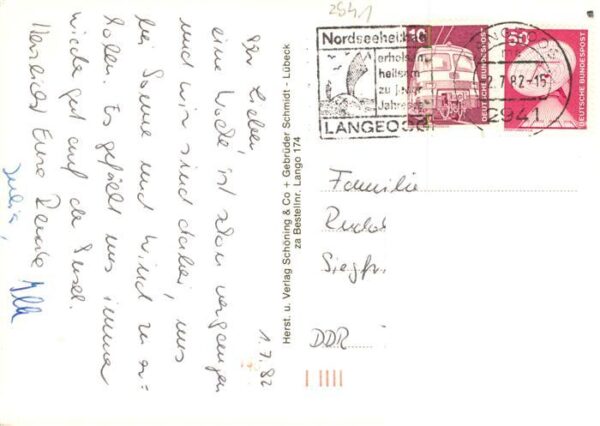 1.7.82
Ihr Lieben,
eine Woche ist schon vergangen
und wir sind dabei, uns
bei Sonne und Wind zu er=
holen. Es gefällt uns immer
wieder gut auf der Insel.
Herzlichst Eure Renate
Julia,
Herst. u. Verlag Schöning & Co + Gebrüder Schmidt - Lübeck
za Bestellnr. Lango 174
2941
Nordseeheilbad
erholsam
heilsam
zu jeder
Jahreszeit
LANGEOOG
10
DEUTSCHE BUNDESPOST
50
DEUTSCHE BUNDESPOST
2.7.82-15
2941
Familie
Rudol
Siegfr
DDR